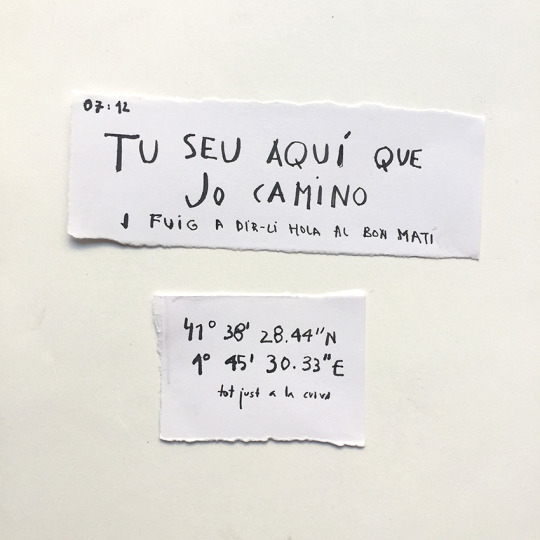 07:12
TU SEU AQUÍ QUE
JO CAMINO
I FUIG A DIR-LI HOLA AL BON MATI
41° 38' 28.44"N
1° 45' 30.33"E
tot just a la curva